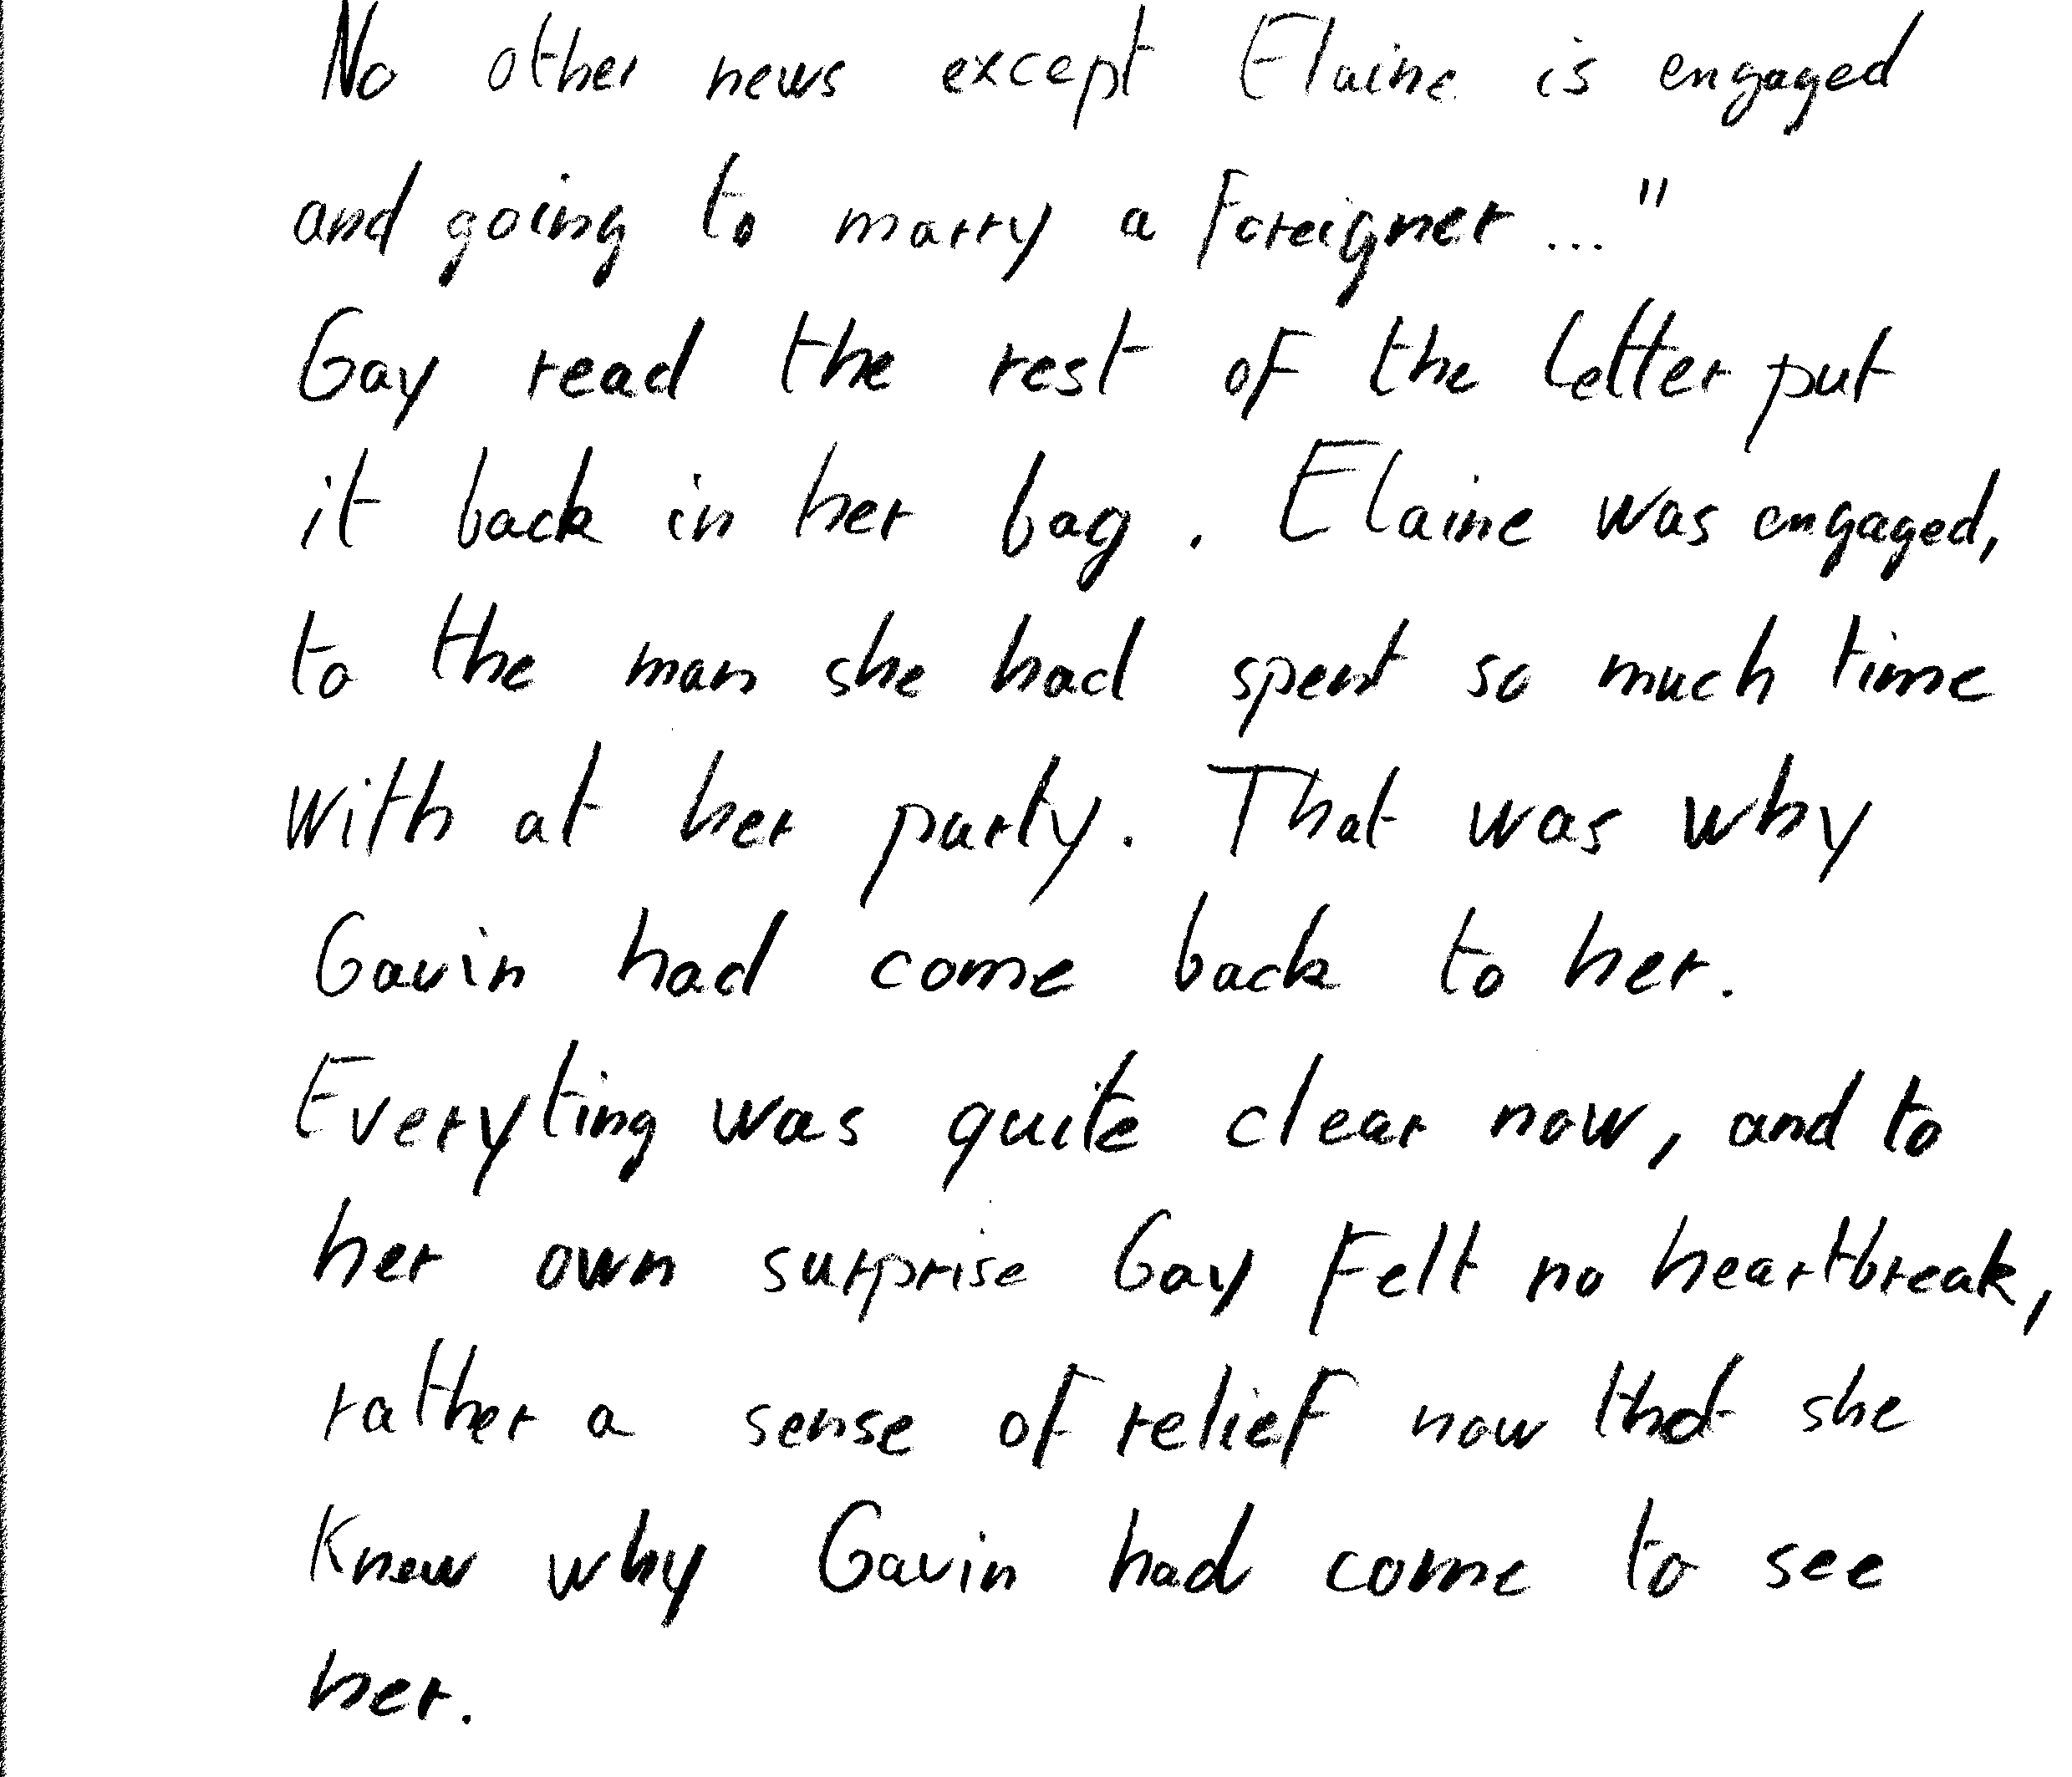 No other news except Elaine is engaged
and going to marry a foreigner ..."
Gay read the rest of the letter put
it back in her bag. Elaine was engaged,
to the man she had spent so much time
with at her party. That was why
Gavin had come back to her.
Everyting was quite clear now, and to
her own surprise Gay felt no heartbreak,
rather a sense of relief now that she
knew why Gavin had come to see
her.